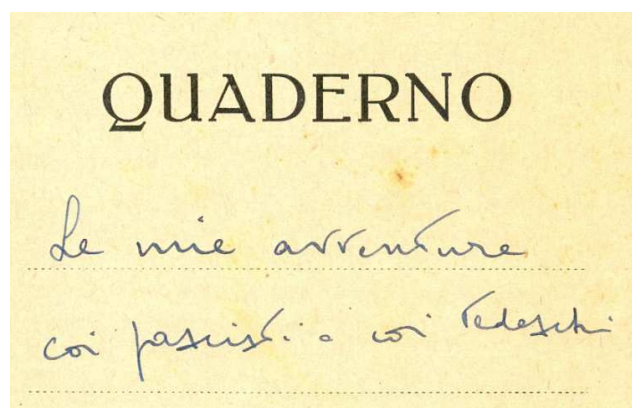 QUADERNO
Le mie avventure
coi fascisti e coi Tedeschi